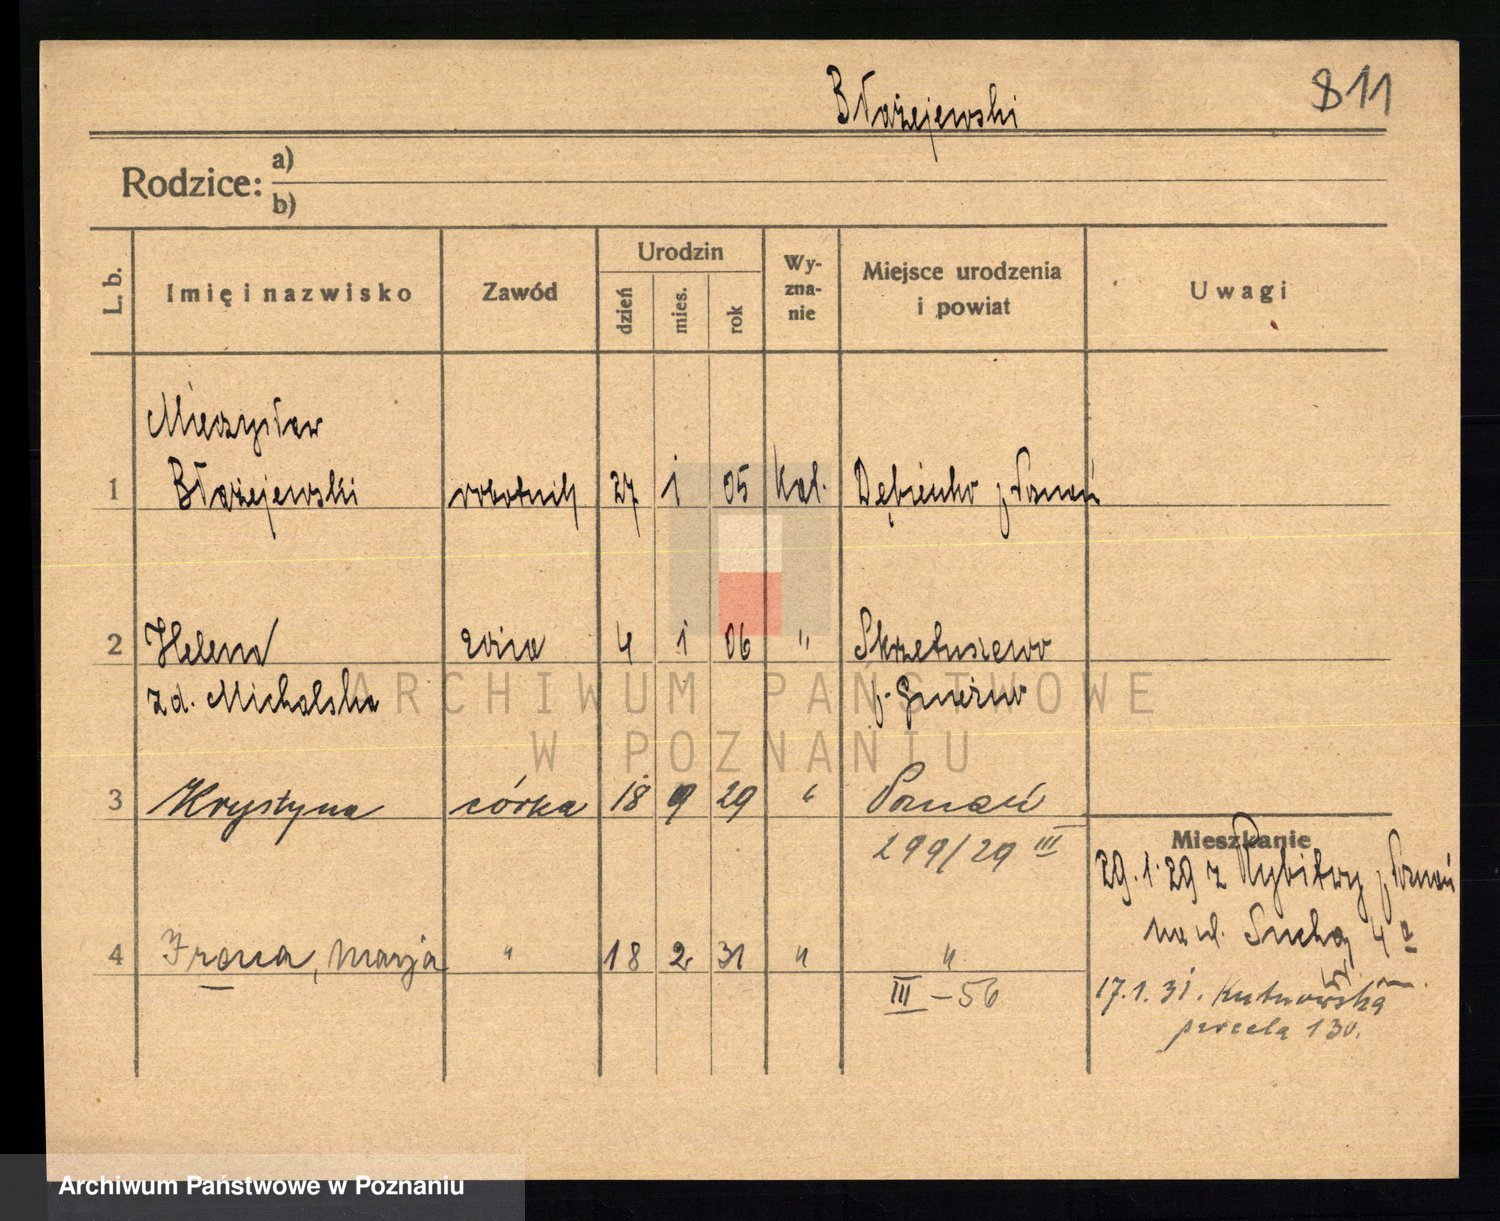 Błażejewski
811
Rodzice:
a)
b)
L. b.
Imię i nazwisko
Zawód
Urodzin
dzień
mies.
rok
Wy-
zna-
nie
Miejsce urodzenia
i powiat
Uwagi
Mieczysław
1 Błażejewski robotnik 27 1 05 Kat. Dębienko p. Poznań
2 Helena żona 4 1 06 " Skrzetuszewo
zd. Michalska p. Gniezno
ARCHIWUM PAŃSTWOWE
W POZNANIU
3 Krystyna córka 18 9 29 " Poznań
299/29 III
4 Irena, Marja " 18 2 31 " "
III - 56
Mieszkanie
29.1.29 z Rybitwy p. Poznań
na ul. Suchą 4 a
17.1.31. Kutnowska
parcela 130.
Archiwum Państwowe w Poznaniu